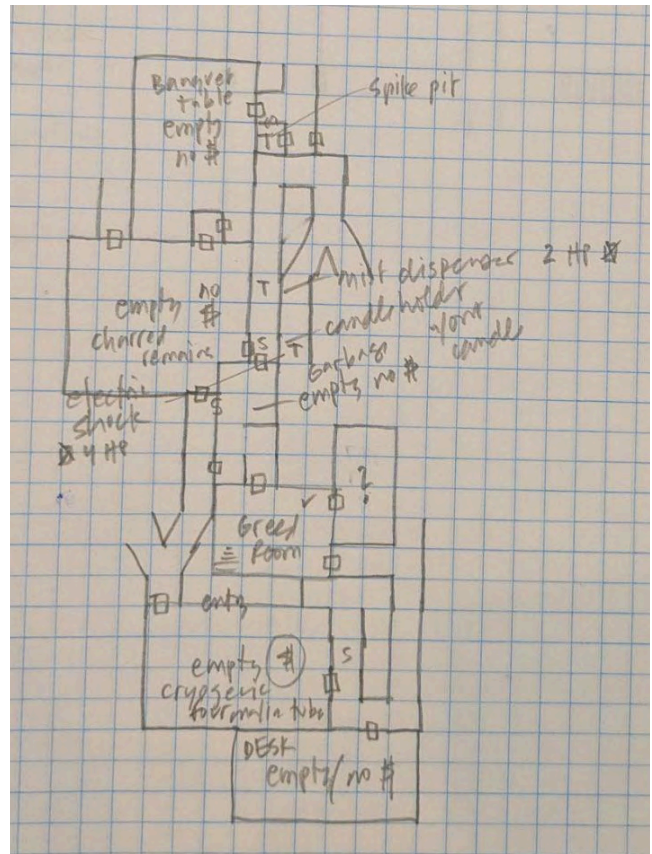 Banquet
table
empty
no $
Spike pit
T
T
mist dispenser 2 HP
candleholder
w/out
candle
no
empty $
charred
remains
S
T
Garbage
empty no $
electric
shock
4 HP
S
?
Greed
Room
T
entry
empty $
cryogenic
formalin tube
S
DESK
empty/no $